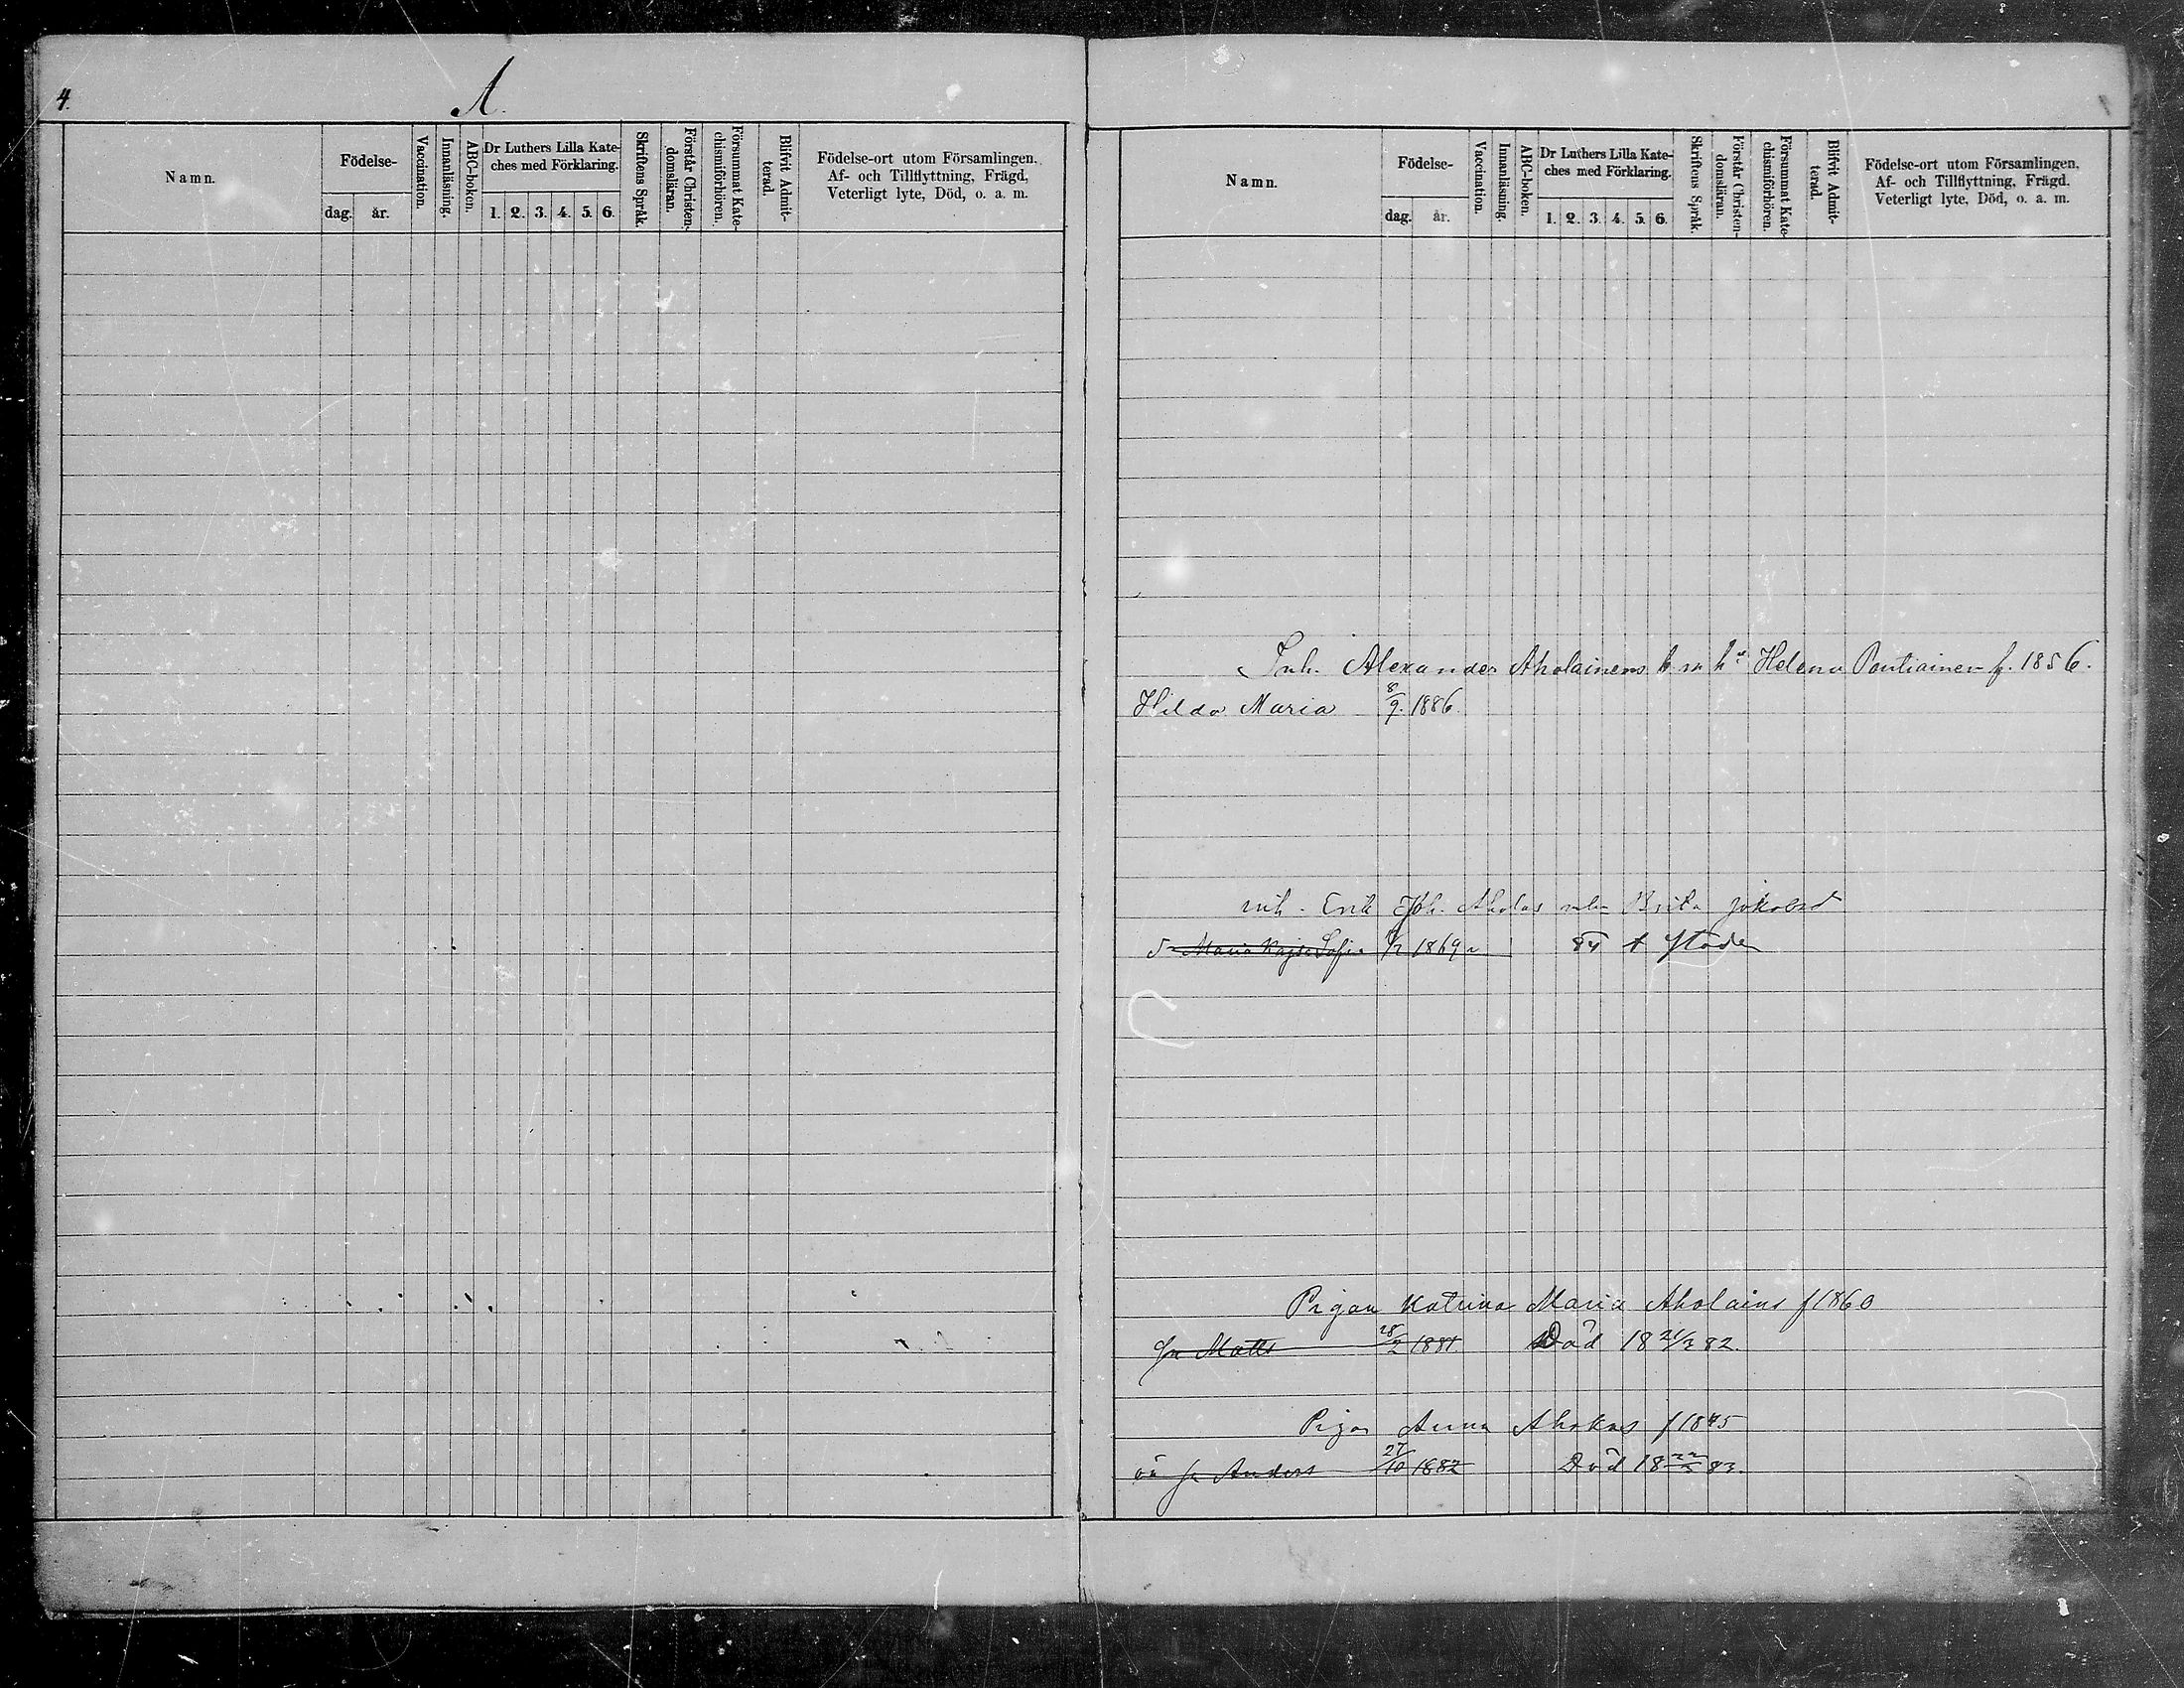 4.
A.
Namn.
Födelse-
dag. år.
Vaccination.
Innanläsning.
ABC-boken.
Dr Luthers Lilla Kate-
ches med Förklaring.
1. 2. 3. 4. 5. 6.
Skriftens Språk.
Förstår Christen-
domsläran.
Försummat Kate-
chismiförhören.
Blifvit Admit-
terad.
Födelse-ort utom Församlingen.
Af- och Tillflyttning, Frägd,
Veterligt lyte, Död, o. a. m.
Namn.
Födelse-
dag. år.
Vaccination.
Innanläsning.
ABC-boken.
Dr Luthers Lilla Kate-
ches med Förklaring.
1. 2. 3. 4. 5. 6.
Skriftens Språk.
Förstår Christen-
domsläran.
Försummat Kate-
chismiförhören.
Blifvit Admit-
terad.
Födelse-ort utom Församlingen,
Af- och Tillflyttning, Frägd.
Veterligt lyte, Död, o. a. m.
Inh. Alexander Aholainens Helena Pentiainen f. 1856.
Hilda Maria 8/9. 1886.
inh. Erik Joh. Aholas Brita
Maria Kajsa Sofia 1869 84
Pigan Katrina Maria Aholains f 1860
Matts 28/2 1881. Död 18 21/3 82.
Pigan Anna Ahokas f 1845
oä Anders 27/10 1882 Död 18 83.